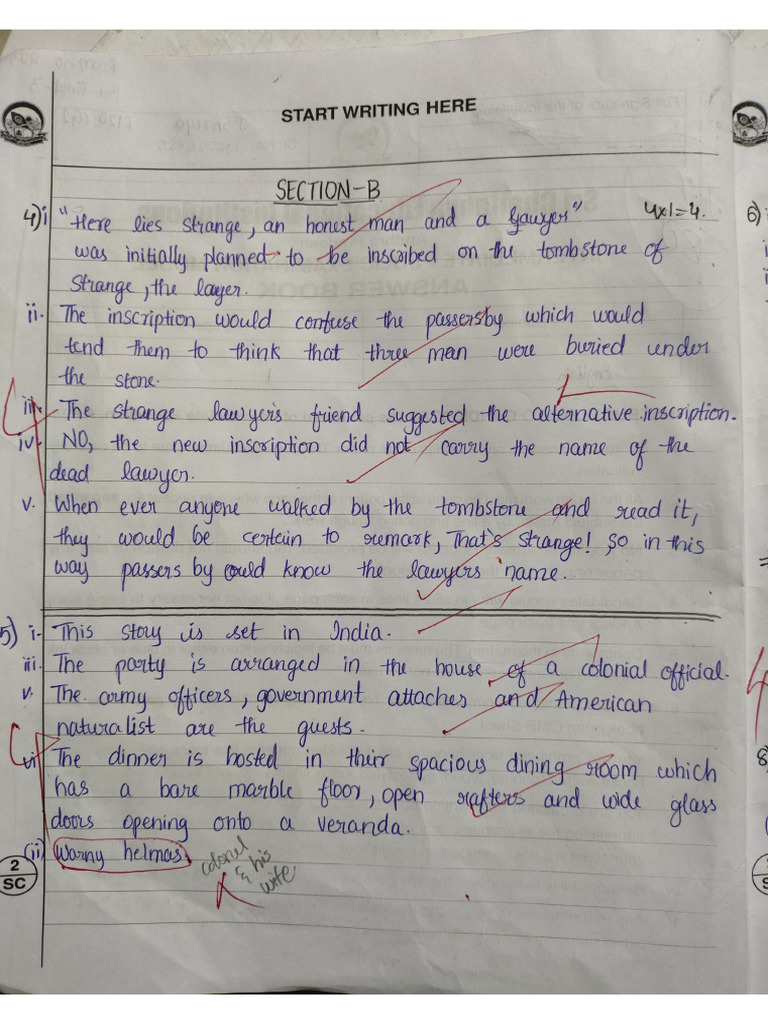 START WRITING HERE
SECTION-B
4) i "Here lies strange, an honest man and a lawyer" 4x1=4.
was initially planned to be inscribed on the tombstone of
strange, the layer.
ii. The inscription would confuse the passersby which would
tend them to think that three man were buried under
the stone.
iii. The strange lawyer's friend suggested the alternative inscription.
iv. NO, the new inscription did not carry the name of the
dead lawyer.
v. When ever anyone walked by the tombstone and read it,
they would be certain to remark, That's strange! So in this
way passers by could know the lawyers name.
5) i. This story is set in India.
iii. The party is arranged in the house of a colonial official.
v. The army officers, government attaches and American
naturalist are the guests.
vi The dinner is hosted in their spacious dining room which
has a bare marble floor, open rafters and wide glass
doors opening onto a veranda.
(ii) Warny helmas.
colonel
& his
wife
2
SC
6)
8)